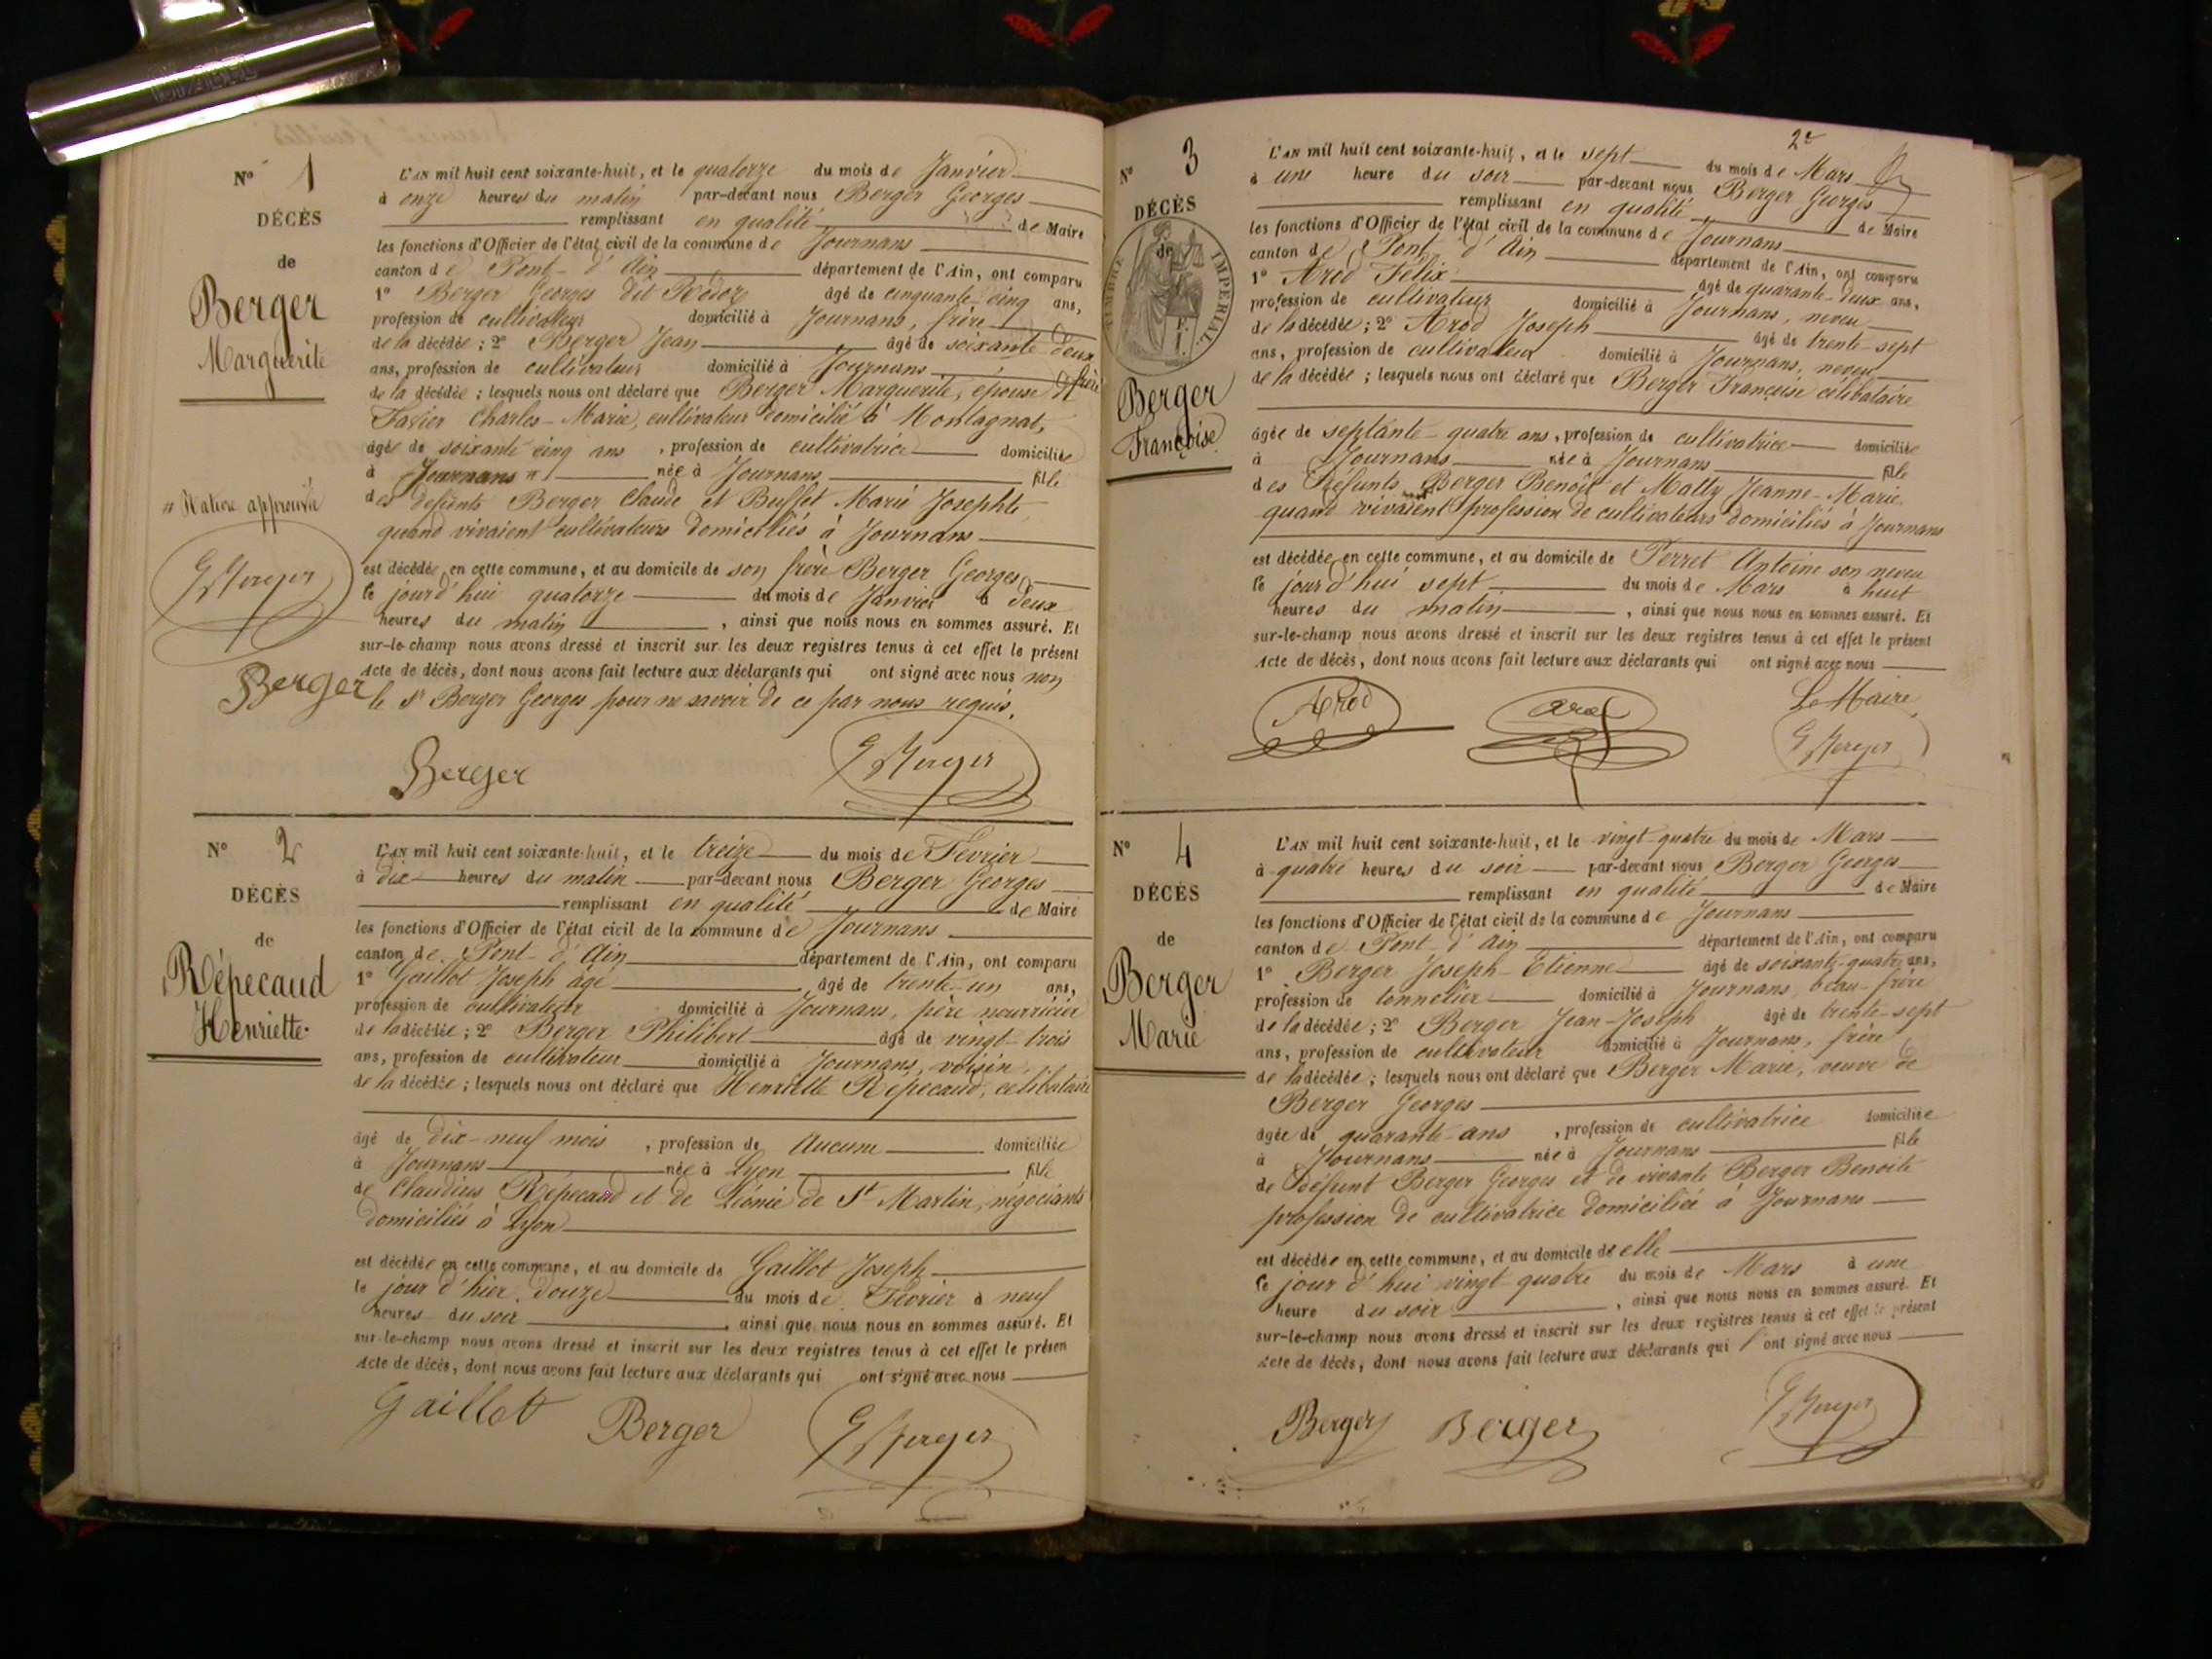 N° 1
DÉCÈS
de
Berger
Marguerite
L'AN mil huit cent soixante-huit, et le quatorze du mois de Janvier
à onze heures du matin par-devant nous Berger Georges
remplissant en qualité de Maire
les fonctions d'Officier de l'état civil de la commune de Journans
canton de Pont-d'Ain département de l'Ain, ont comparu
1° Berger Georges dit Rédoz âgé de cinquante-cinq ans,
profession de cultivateur domicilié à Journans, frère
de la décédée; 2° Berger Jean âgé de soixante-deux
ans, profession de cultivateur domicilié à Journans frère
de la décédée; lesquels nous ont déclaré que Berger Marguerite, épouse de
Favier Charles-Marie, cultivateur domicilié à Montagnat,
âgée de soixante cinq ans, profession de cultivatrice domiciliée
à Journans née à Journans fille
des defunts Berger Claude et Buffet Marie Josephte
quand vivaient cultivateurs domiciliés à Journans
est décédée en cette commune, et au domicile de son frère Berger Georges
le jourd'hui quatorze du mois de Janvier à deux
heures du matin, ainsi que nous nous en sommes assuré. Et
sur-le-champ nous avons dressé et inscrit sur les deux registres tenus à cet effet le présent
Acte de décès, dont nous avons fait lecture aux déclarants qui ont signé avec nous non
le Sr Berger Georges pour ne savoir de ce par nous requis.
approuvée
G Berger
Berger
Berger
G Berger
N° 2
DÉCÈS
de
Répecaud
Henriette
L'AN mil huit cent soixante-huit, et le treize du mois de Février
à dix heures du matin par-devant nous Berger Georges
remplissant en qualité de Maire
les fonctions d'Officier de l'état civil de la commune de Journans
canton de Pont-d'Ain département de l'Ain, ont comparu
1° Gaillot Joseph âgé âgé de trente-un ans,
profession de cultivateur domicilié à Journans, père nourricier
de la décédée; 2° Berger Philibert âgé de vingt-trois
ans, profession de cultivateur domicilié à Journans, voisin
de la décédée; lesquels nous ont déclaré que Henriette Répecaud, célibataire
âgé de dix-neuf mois, profession de Aucune domiciliée
à Journans née à Lyon fille
de Claudius Répecaud et de Léonie de St Martin, négociants
domiciliés à Lyon
est décédée en cette commune, et au domicile de Gaillot Joseph
le jour d'hier douze du mois de Février à neuf
heures du soir, ainsi que nous nous en sommes assuré. Et
sur-le-champ nous avons dressé et inscrit sur les deux registres tenus à cet effet le présen
Acte de décès, dont nous avons fait lecture aux déclarants qui ont signé avec nous
Gaillot Berger G Berger
2e
N° 3
DÉCÈS
de
TIMBRE IMPÉRIAL
Berger
Françoise
L'AN mil huit cent soixante-huit, et le sept du mois de Mars
à une heure du soir par-devant nous Berger Georges
remplissant en qualité de Maire
les fonctions d'Officier de l'état civil de la commune de Journans
canton de Pont-d'Ain département de l'Ain, ont comparu
1° Arod Félix âgé de quarante-deux ans,
profession de cultivateur domicilié à Journans, neveu
de la décédée; 2° Arod Joseph âgé de trente-sept
ans, profession de cultivateur domicilié à Journans, neveu
de la décédée; lesquels nous ont déclaré que Berger Françoise célibataire
âgée de septante-quatre ans, profession de cultivatrice domiciliée
à Journans née à Journans fille
des Défunts Berger Benoît et Matty Jeanne-Marie
quand vivaient profession de cultivateurs domiciliés à Journans
est décédée en cette commune, et au domicile de Perret Antoine son neveu
le jourd'hui sept du mois de Mars à huit
heures du matin, ainsi que nous nous en sommes assuré. Et
sur-le-champ nous avons dressé et inscrit sur les deux registres tenus à cet effet le présent
Acte de décès, dont nous avons fait lecture aux déclarants qui ont signé avec nous
Le Maire
Arod Arod G Berger
N° 4
DÉCÈS
de
Berger
Marie
L'AN mil huit cent soixante-huit, et le vingt-quatre du mois de Mars
à quatre heures du soir par-devant nous Berger Georges
remplissant en qualité de Maire
les fonctions d'Officier de l'état civil de la commune de Journans
canton de Pont-d'Ain département de l'Ain, ont comparu
1° Berger Joseph-Etienne âgé de soixante-quatre ans,
profession de tonnelier domicilié à Journans, beau-frère
de la décédée; 2° Berger Jean-Joseph âgé de trente-sept
ans, profession de cultivateur domicilié à Journans, frère
de la décédée; lesquels nous ont déclaré que Berger Marie, veuve de
Berger Georges
âgée de quarante-ans, profession de cultivatrice domiciliée
à Journans née à Journans fille
de Défunt Berger Georges et de vivante Berger Benoite
profession de cultivatrice domiciliée à Journans
est décédée en cette commune, et au domicile de elle
le jour d'hui vingt quatre du mois de Mars à une
heure du soir, ainsi que nous nous en sommes assuré. Et
sur-le-champ nous avons dressé et inscrit sur les deux registres tenus à cet effet le présent
Acte de décès, dont nous avons fait lecture aux déclarants qui ont signé avec nous
Berger Berger G Berger